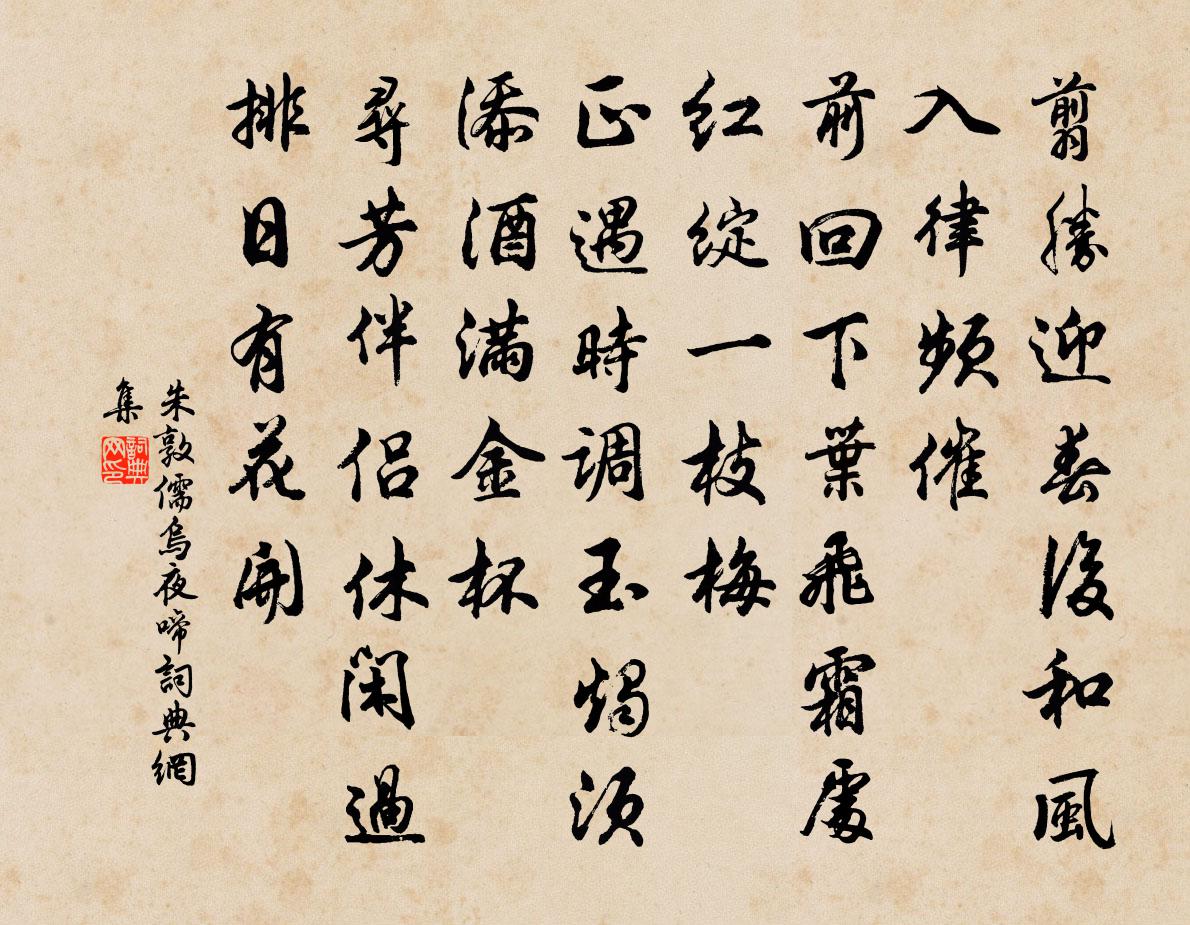 翦勝迎春後和風
入律頻催
前回下葉飛霜處
紅綻一枝梅
正遇時調玉燭須
添酒滿金杯
尋芳伴侣休閑過
排日有花開
朱敦儒烏夜啼詞典網
集
詞典網印